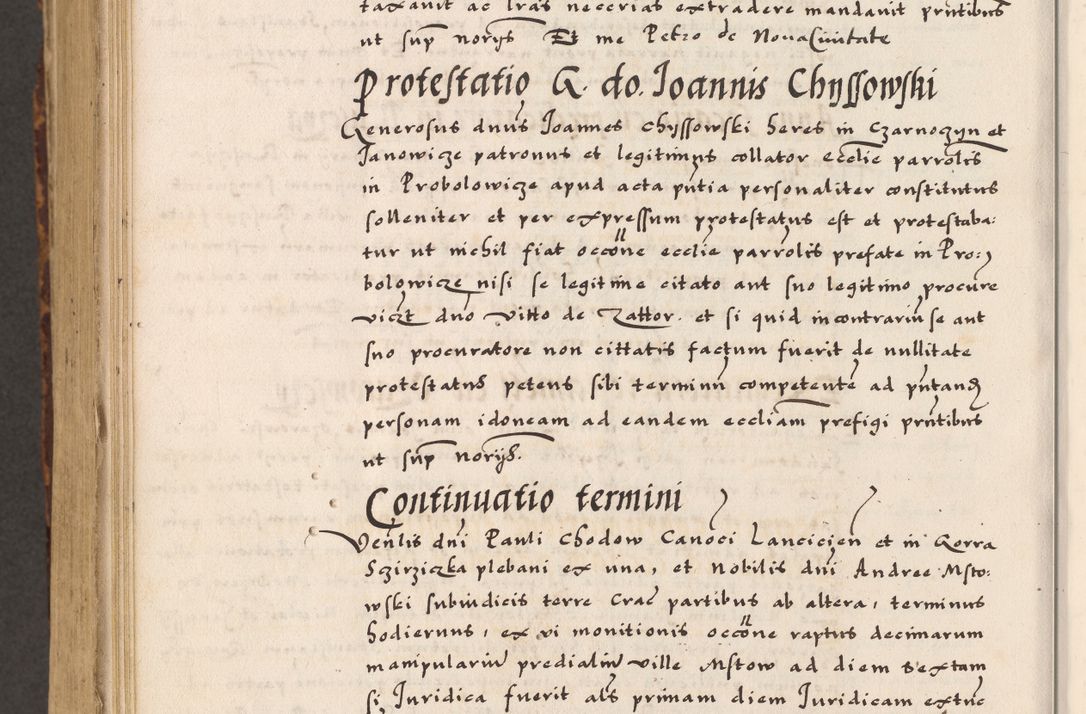 taxavit ac lras necerias extradere mandavit prntibus
ut sup norijs Et me Petro de Nova Civitate
Protestatio G. do. Joannis Chyssowski
Generosus dnus Joannes Chyssowski heres in Czarnoczyn et
Janowicze patronus et legitimus collator ecclie parrolis
in Probolowicze apud acta pntia personaliter constitutus
solleniter et per expressum protestatus est et protestaba:
tur ut nichil fiat occone ecclie parrolis prefate in Pro:
bolowicze nisi se legitime citato aut suo legitimo procure
viczt dno Vitto de Zattor. et si quid in contrariu se aut
suo procuratore non cittatis factum fuerit de nullitate
protestatus petens sibi terminu competente ad pntand
personam idoneam ad eandem eccliam prefigi prntibus
ut sup norijs.
Continuatio termini
Venlis dni Pauli Chodow Canoci Lancicien et in Gorra
Sczirziczka plebani ex una, et Nobilis dni Andree Msto:
wski subiudicis terre Crac partibus ab altera, terminus
hodiernus, ex vi monitionis occone raptus decimarum
manipulariu predialiu ville Mstow ad diem sextam
si Juridica fuerit als primam diem Juridicam extuc